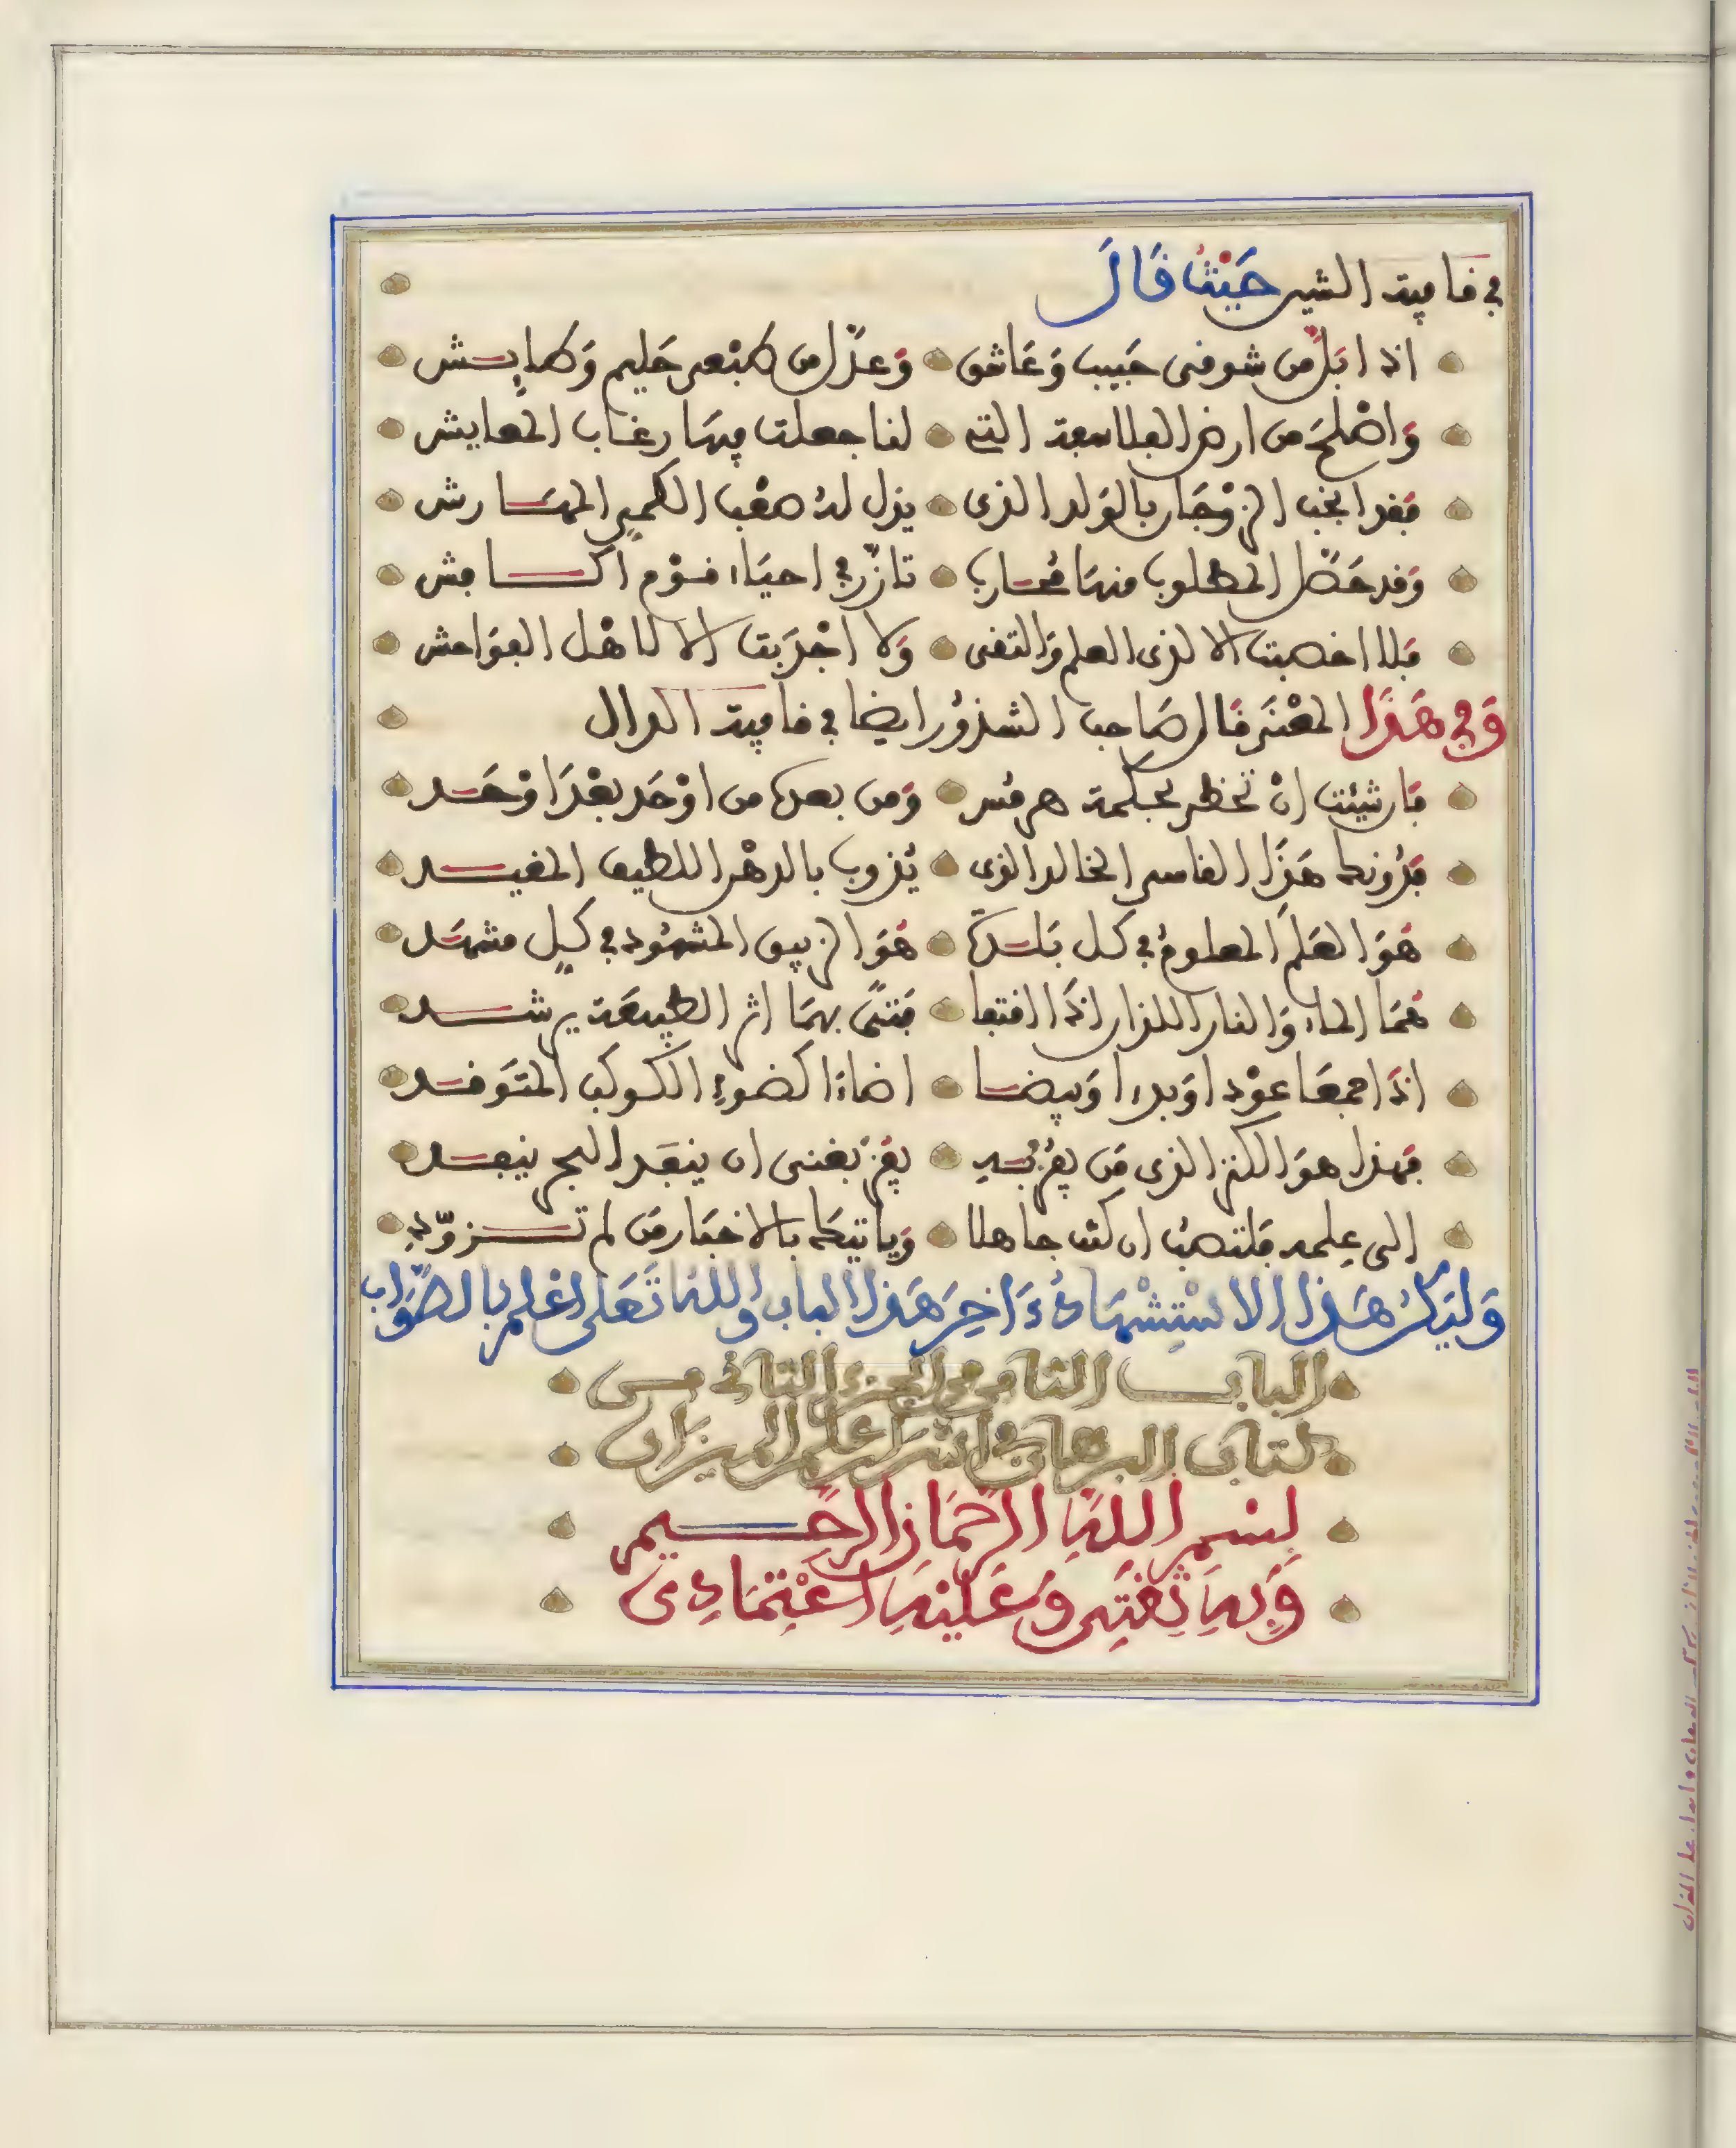 في قافية الشين حَيْثُ قَالَ
اذا ابَلَّ من شوقى حَبيب وَعَاشق وَعدّل من كبْعى حَليم وَطايش
وَاصْلحَ من ارض الفلاسفة التى لنا جعلت فيهَا رغاب المعايش
فقد انجب الزوْجَان بالوَلد الذى يذل لهُ صعْب الكمىّ المهَارش
وَقد حَصّل المطلوب منهَا مُحَارب تازّر في احيَاء قوْم اكامش
فلا اخصبت الا لذى العلم وَالتقى وَلا اجْدَبت الا لاهْل الفوَاحش
وَفِي هَذَا المعْنَى قَال صَاحب الشذوُر ايضا في قافية الدال
فان شئت انْ تحظى بحكمة هرمُس وَمن بعده من اوْحَد بعْدَ اوْحَد
فدُونكها هَذَا القاسى الخالد الذى يُذوب بالدهْن اللطيف المقيد
هُوَ العَلَم المعلومُ في كل بَلدَة هُوَ الزيبق المشهُود في كلِ مشهَد
هُمَا الماء وَالنار اللذان اذَا التقا فتىً بهمَا اثر الطبيعَة يرشد
اذَا جمعَا عوْدا وَبدءا وَبيضا اضاءَا كضوءِ الكوكب المتوَقد
فهَذا هوَ الكنز الذى مَن يفُز به يفُز بغنى ان ينفَد البحر ينفد
الى عِلمه فلتصبُ ان كنت جاهلا وَياتيكَ بالاخبَار مَن لم تزوّدِ
وَلْيَكُنْ هَذَا الاسْتِشْهَادُ ءَاخِرَ هَذَا الباب وَاللهُ تَعَلَى اعْلم بالصّوَاب
الباب الثامن من الجزء الثاني من
كتاب البرهان في اسرار علم الميزان
بِسْمِ اللهِ الرَّحْمَانِ الرَّحِيمِ
وَبِهِ ثِقَتِى وَعَلَيْهِ اعْتِمَادِى